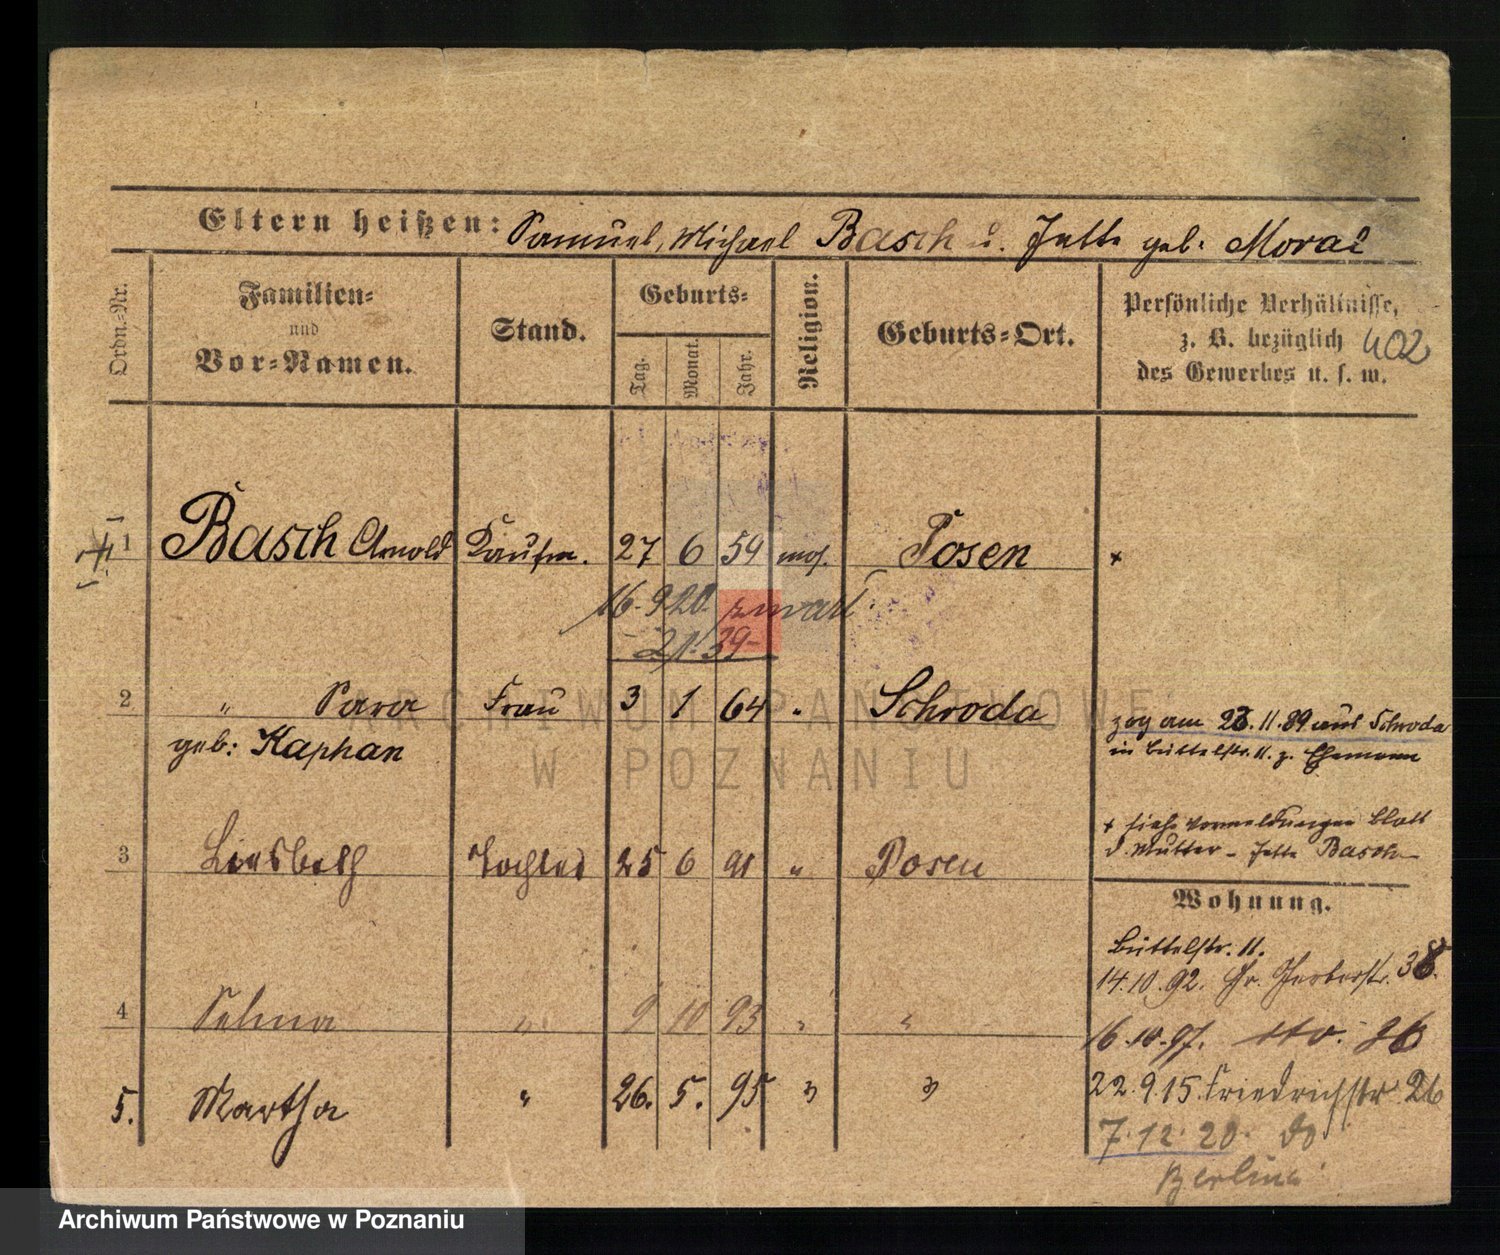 Eltern heißen: Samuel, Michael Basch u. Jette geb. Moral
Ordn.-Nr.
Familien-
und
Vor-Namen.
Stand.
Geburts-
Tag.
Monat.
Jahr.
Religion.
Geburts-Ort.
Persönliche Verhältnisse,
z. B. bezüglich
des Gewerbes u. s. w.
402
1 Basch Arnold Kaufm. 27 6 59 mos. Posen +
16. 9 20. zmarł
21. 39
2 " Sara Frau 3 1 64 " Schroda
geb: Kaphan
zog am 23. 11. 89 aus Schroda
in Büttelstr. 11. z. Ehemann
3 Liesbeth Tochter 25 6 91 " Posen
+ siehe Anmeldungen Blatt
d. Mutter - Jette Basch
Wohnung.
Büttelstr. 11.
14. 10. 92. Gr. Gerberstr. 38.
4 Selma " 9 10 93 " "
16. 10. 97. dto. 36
5. Martha " 26. 5. 95 " "
22. 9. 15. Friedrichstr 26
7. 12. 20. do
Berlina
ARCHIWUM PAŃSTWOWE
W POZNANIU
Archiwum Państwowe w Poznaniu